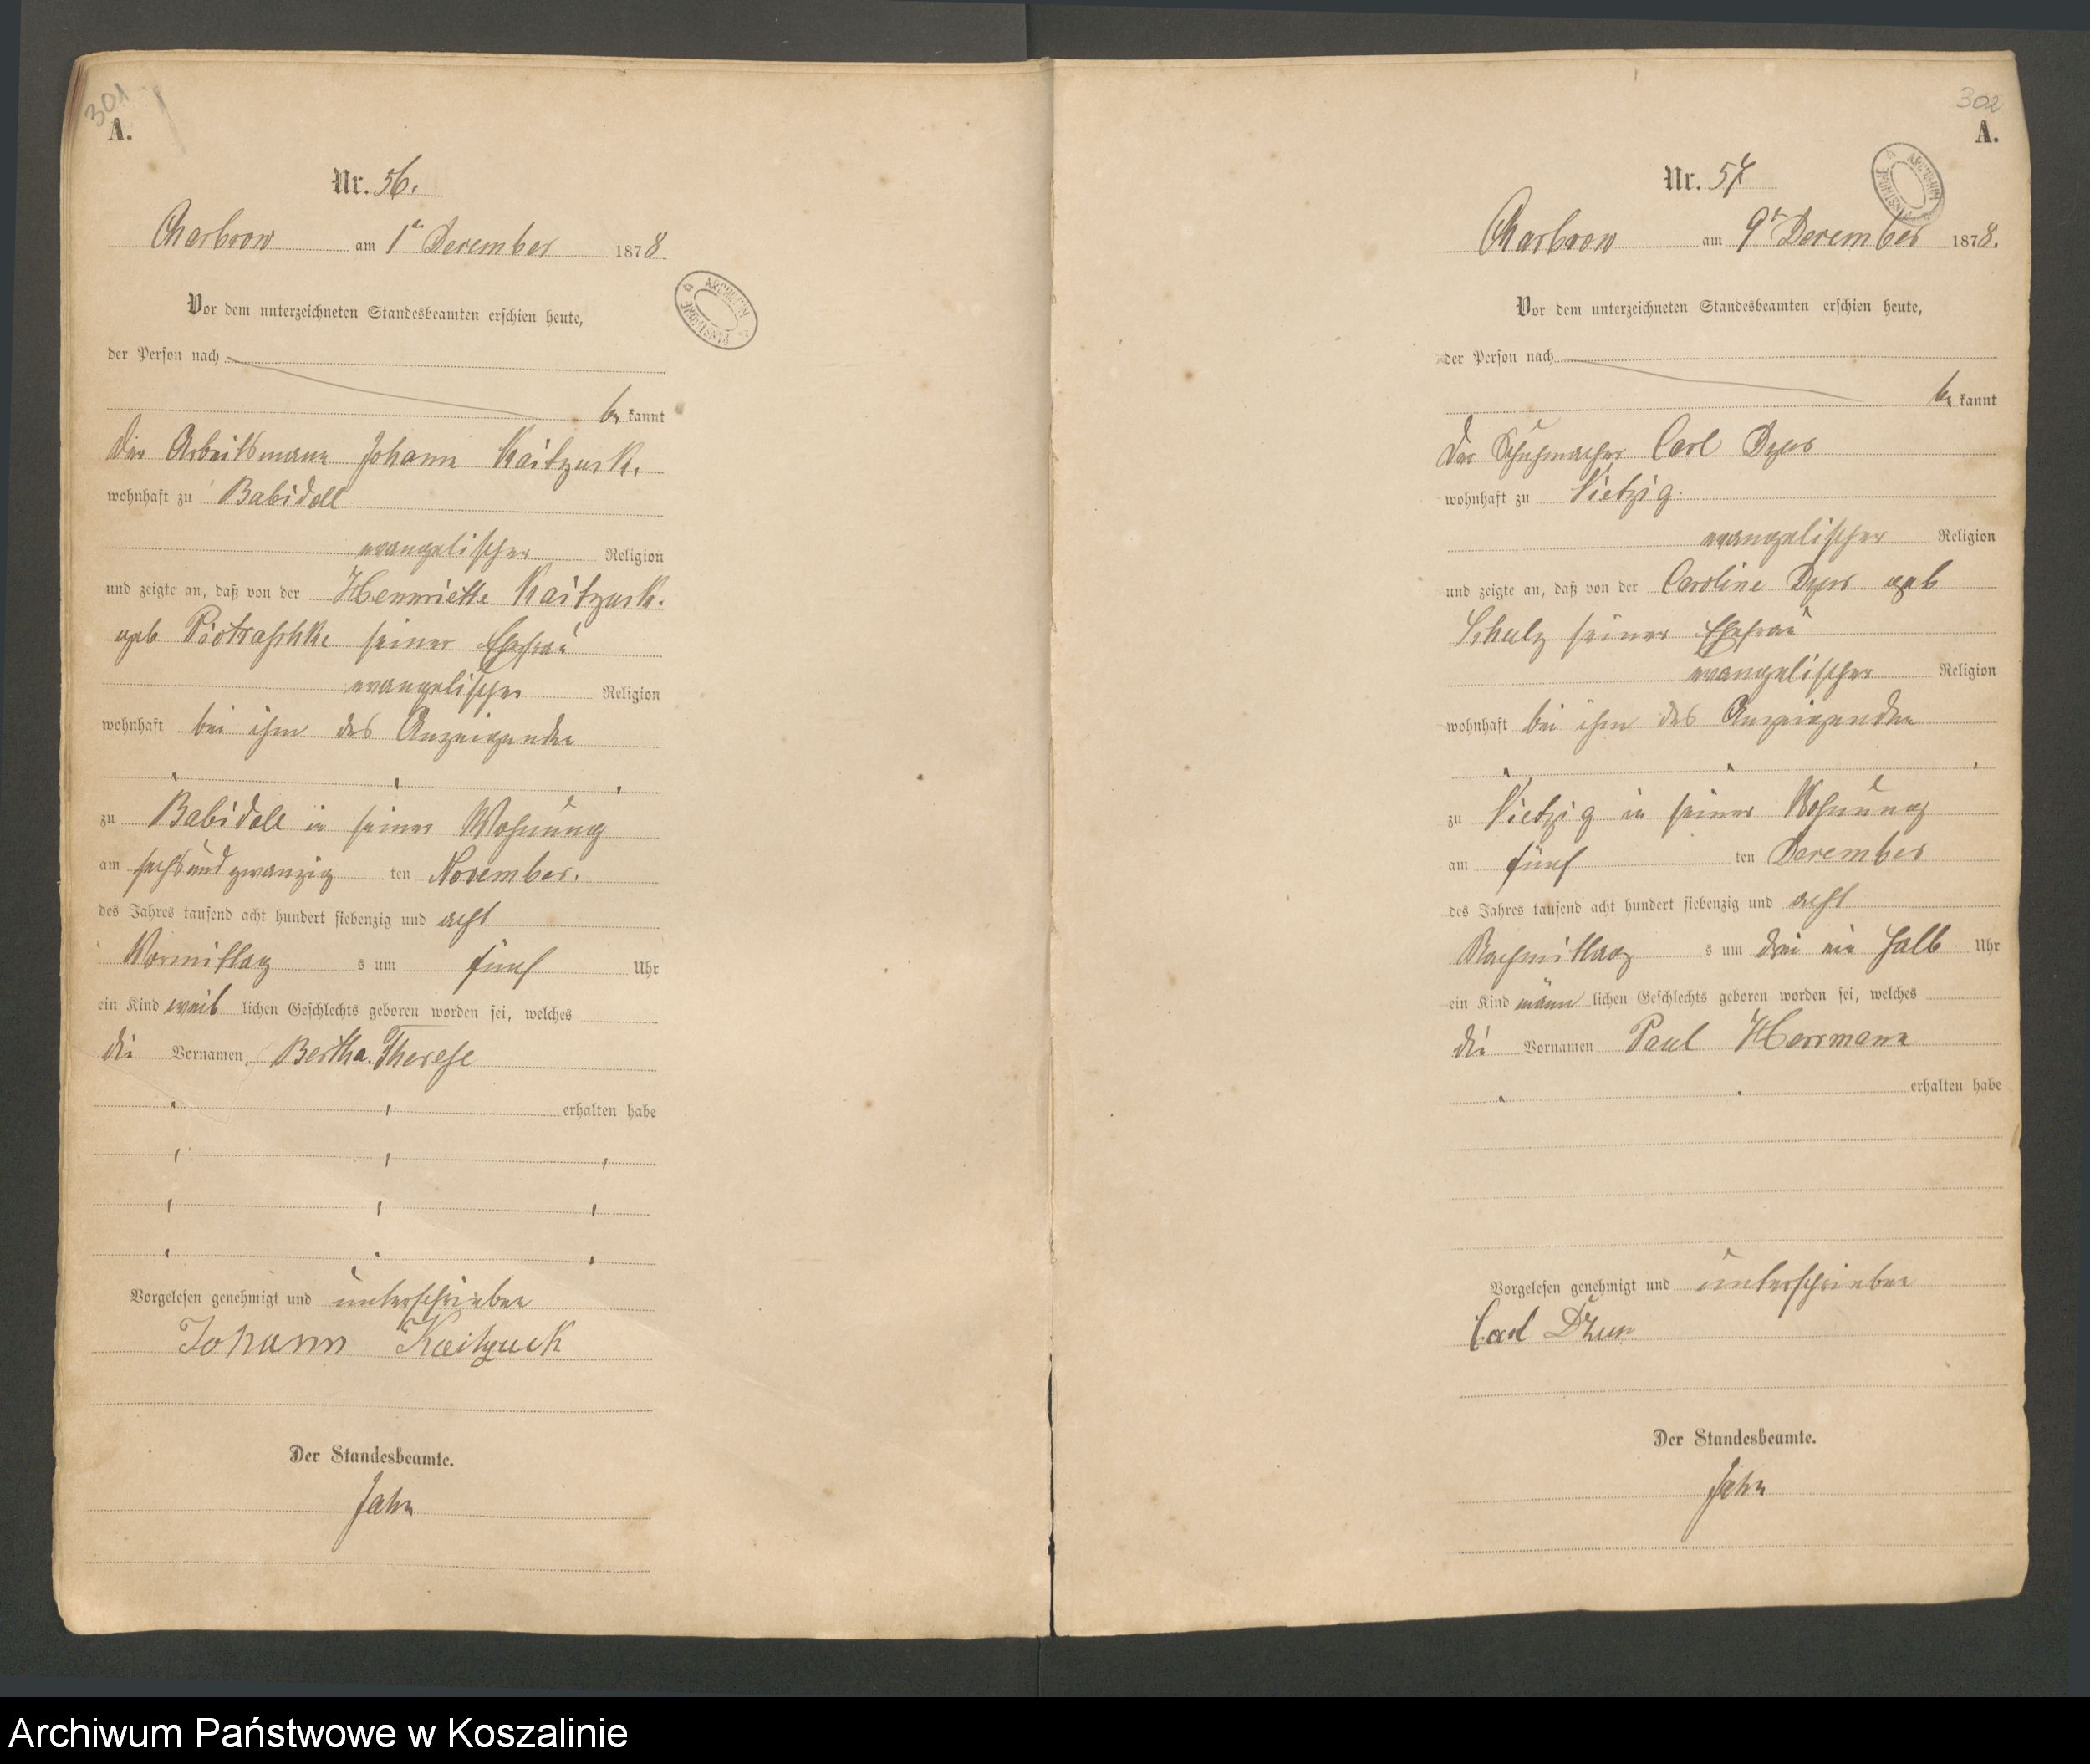 301
A.
Nr. 56.
Charbrow am 1ten December 1878
Vor dem unterzeichneten Standesbeamten erschien heute,
der Person nach
bekannt
der Arbeitsmann Johann Kaitzuck.
wohnhaft zu Babidoll
evangelischer Religion
und zeigte an, daß von der Henriette Kaitzuck.
geb seiner Ehefrau
evangelischer Religion
wohnhaft bei ihm des Anzeigenden
zu Babidoll in seiner Wohnung
am sechsundzwanzig ten November.
des Jahres tausend acht hundert siebenzig und acht
Vormittag s um fünf Uhr
ein Kind weib lichen Geschlechts geboren worden sei, welches
die Vornamen Bertha Therese
erhalten habe
Vorgelesen genehmigt und unterschrieben
Johann Kaitzuck
Der Standesbeamte.
Jahn
ARCHIWUM PAŃSTWOWE
302
A.
Nr. 57
Charbrow am 9ten December 1878.
Vor dem unterzeichneten Standesbeamten erschien heute,
der Person nach
bekannt
der Schuhmacher Carl
wohnhaft zu Vietzig.
evangelischer Religion
und zeigte an, daß von der Caroline geb
Schulz seiner Ehefrau
evangelischer Religion
wohnhaft bei ihm des Anzeigenden
zu Vietzig in seiner Wohnung
am fünf ten December
des Jahres tausend acht hundert siebenzig und acht
Nachmittag s um drei ein halb Uhr
ein Kind männ lichen Geschlechts geboren worden sei, welches
die Vornamen Paul Herrmann
erhalten habe
Vorgelesen genehmigt und unterschrieben
Carl
Der Standesbeamte.
Jahn
ARCHIWUM PAŃSTWOWE
Archiwum Państwowe w Koszalinie